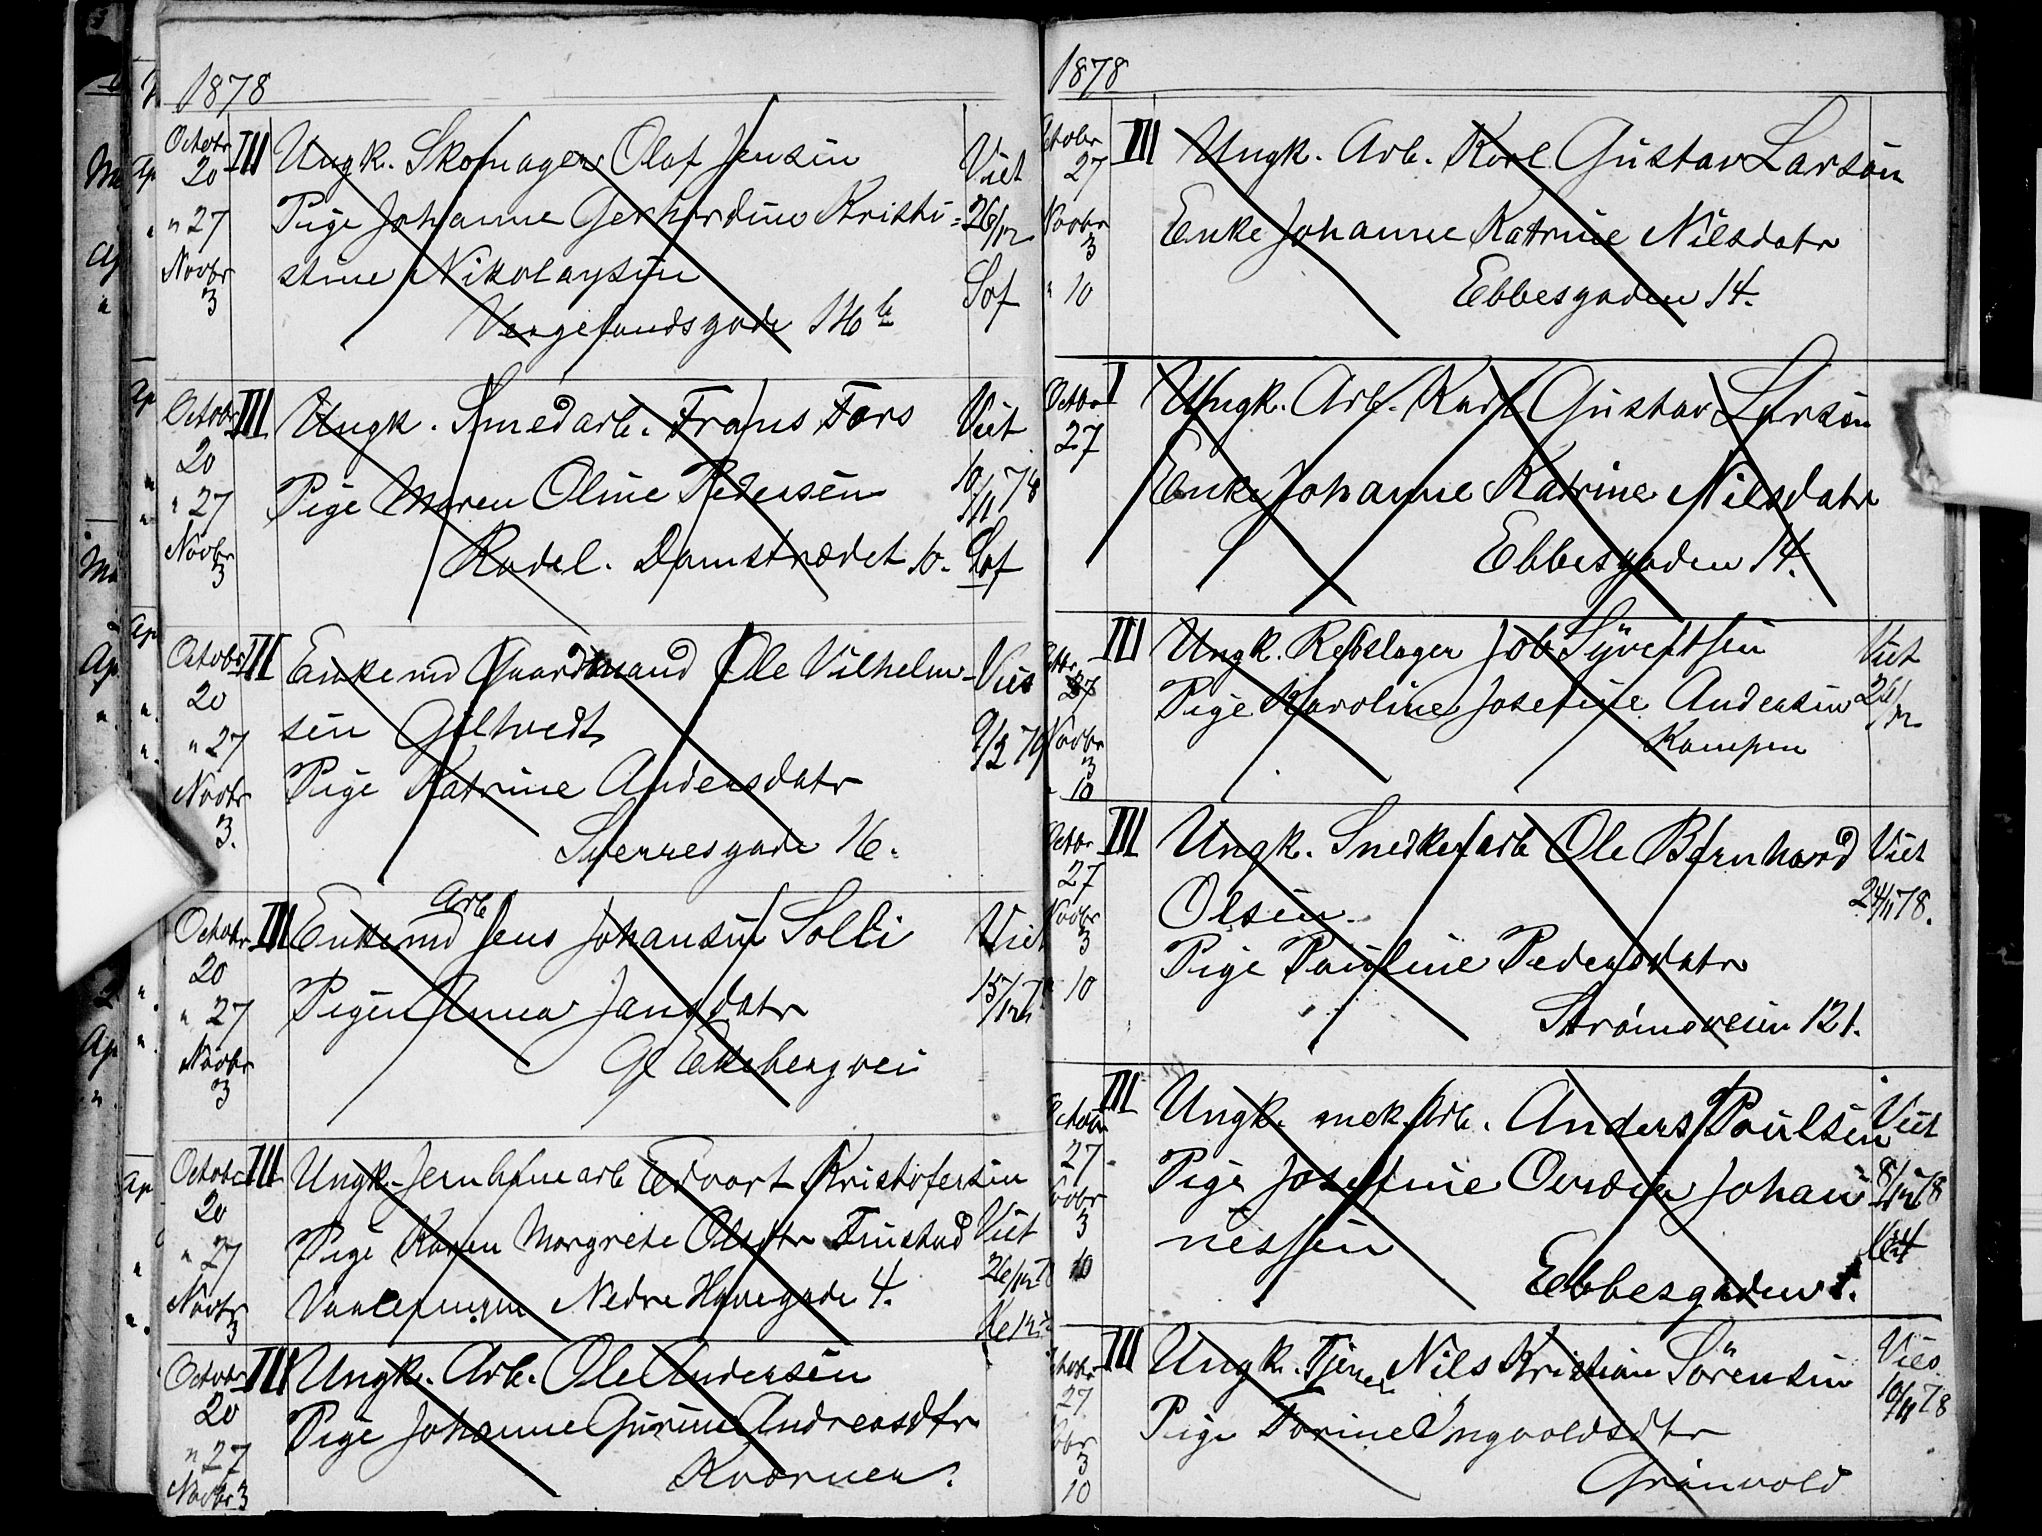 1878
Octobr 20 III Ungk. Skomager Olaf Jensen Viet
" 27 Pige Johanne Gerhardine Kristi= 26/12
Novbr 3 stine Nikolaysen Sof
Vergelandsgade 14b
Octobr III Ungk. Smedarb. Frans Fors Viet
20 Pige Maren Oline Pedersen 10/11 78
" 27
Novbr 3 Radel. Damstrædet 10. Sof
Octobr III Enkemd Gaardmand Ole Vilhelm- Vies
20 sen Giltvedt
" 27 Pige Katrine Andersdatr 9/2 79
Novbr 3. Sverresgade 16.
Arb
Octobr III Enkemd Jens Johansen Solli Viet
20 Pigen Anna Jansdatr 15/12
" 27
Novbr 3 Gl Ekebergvei
Octobr III Ungk. Jernbanearb Edvart Kristofersen
20 Pige Karen Margrete Olsdtr Finstad Viet
" 27 26/12
Novbr 3 Vaalerengen Nedre Havegade 4.
Octobr III Ungk. Arb. Ole Andersen
20 Pige Johanne Gurine Andreasdtr
" 27
Novbr 3 Kværner.
1878
Octobr 27 III Ungk. Arb. Karl Gustav Larsen
Novbr 3 Enke Johanne Katrine Nilsdatr
" 10 Ebbesgaden 14.
Octbr I Ungk. Arb. Karl Gustav Larsen
27 Enke Johanne Katrine Nilsdatr
Ebbesgaden 14.
Octbr 27 III Ungk. Rebslager Job Syvertsen Viet
Pige Karoline Josefine Andersen 26/12
Novbr 3 Kampen
" 10
Octbr III Ungk. Snedkerarb Ole Bernhard Viet
27 Olsen 24/11 78.
Novbr 3 Pige Pauline Pedersdatr
" 10 Strømsveien 121.
Octobr III Ungk. mek. Arb. Anders Poulsen Viet
27 Pige Josefine Ovedia Johan 8/12 78
Novbr 3 nessen
10 Ebbesgaden 1.
Octobr III Ungk. Tjener Nils Kristian Sörensen Vies
27 Pige Torine Ingvoldsdtr 10/11 78
Novbr 3
10 Grønvold